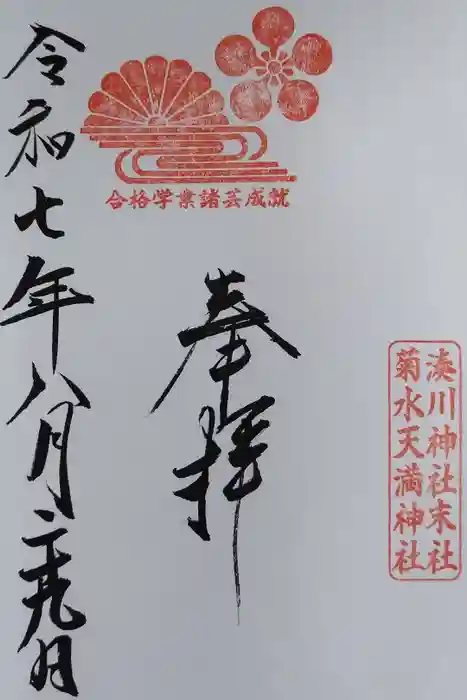 湊川神社末社
菊水天満神社
合格学業諸芸成就
奉拝
令和七年八月二十九日